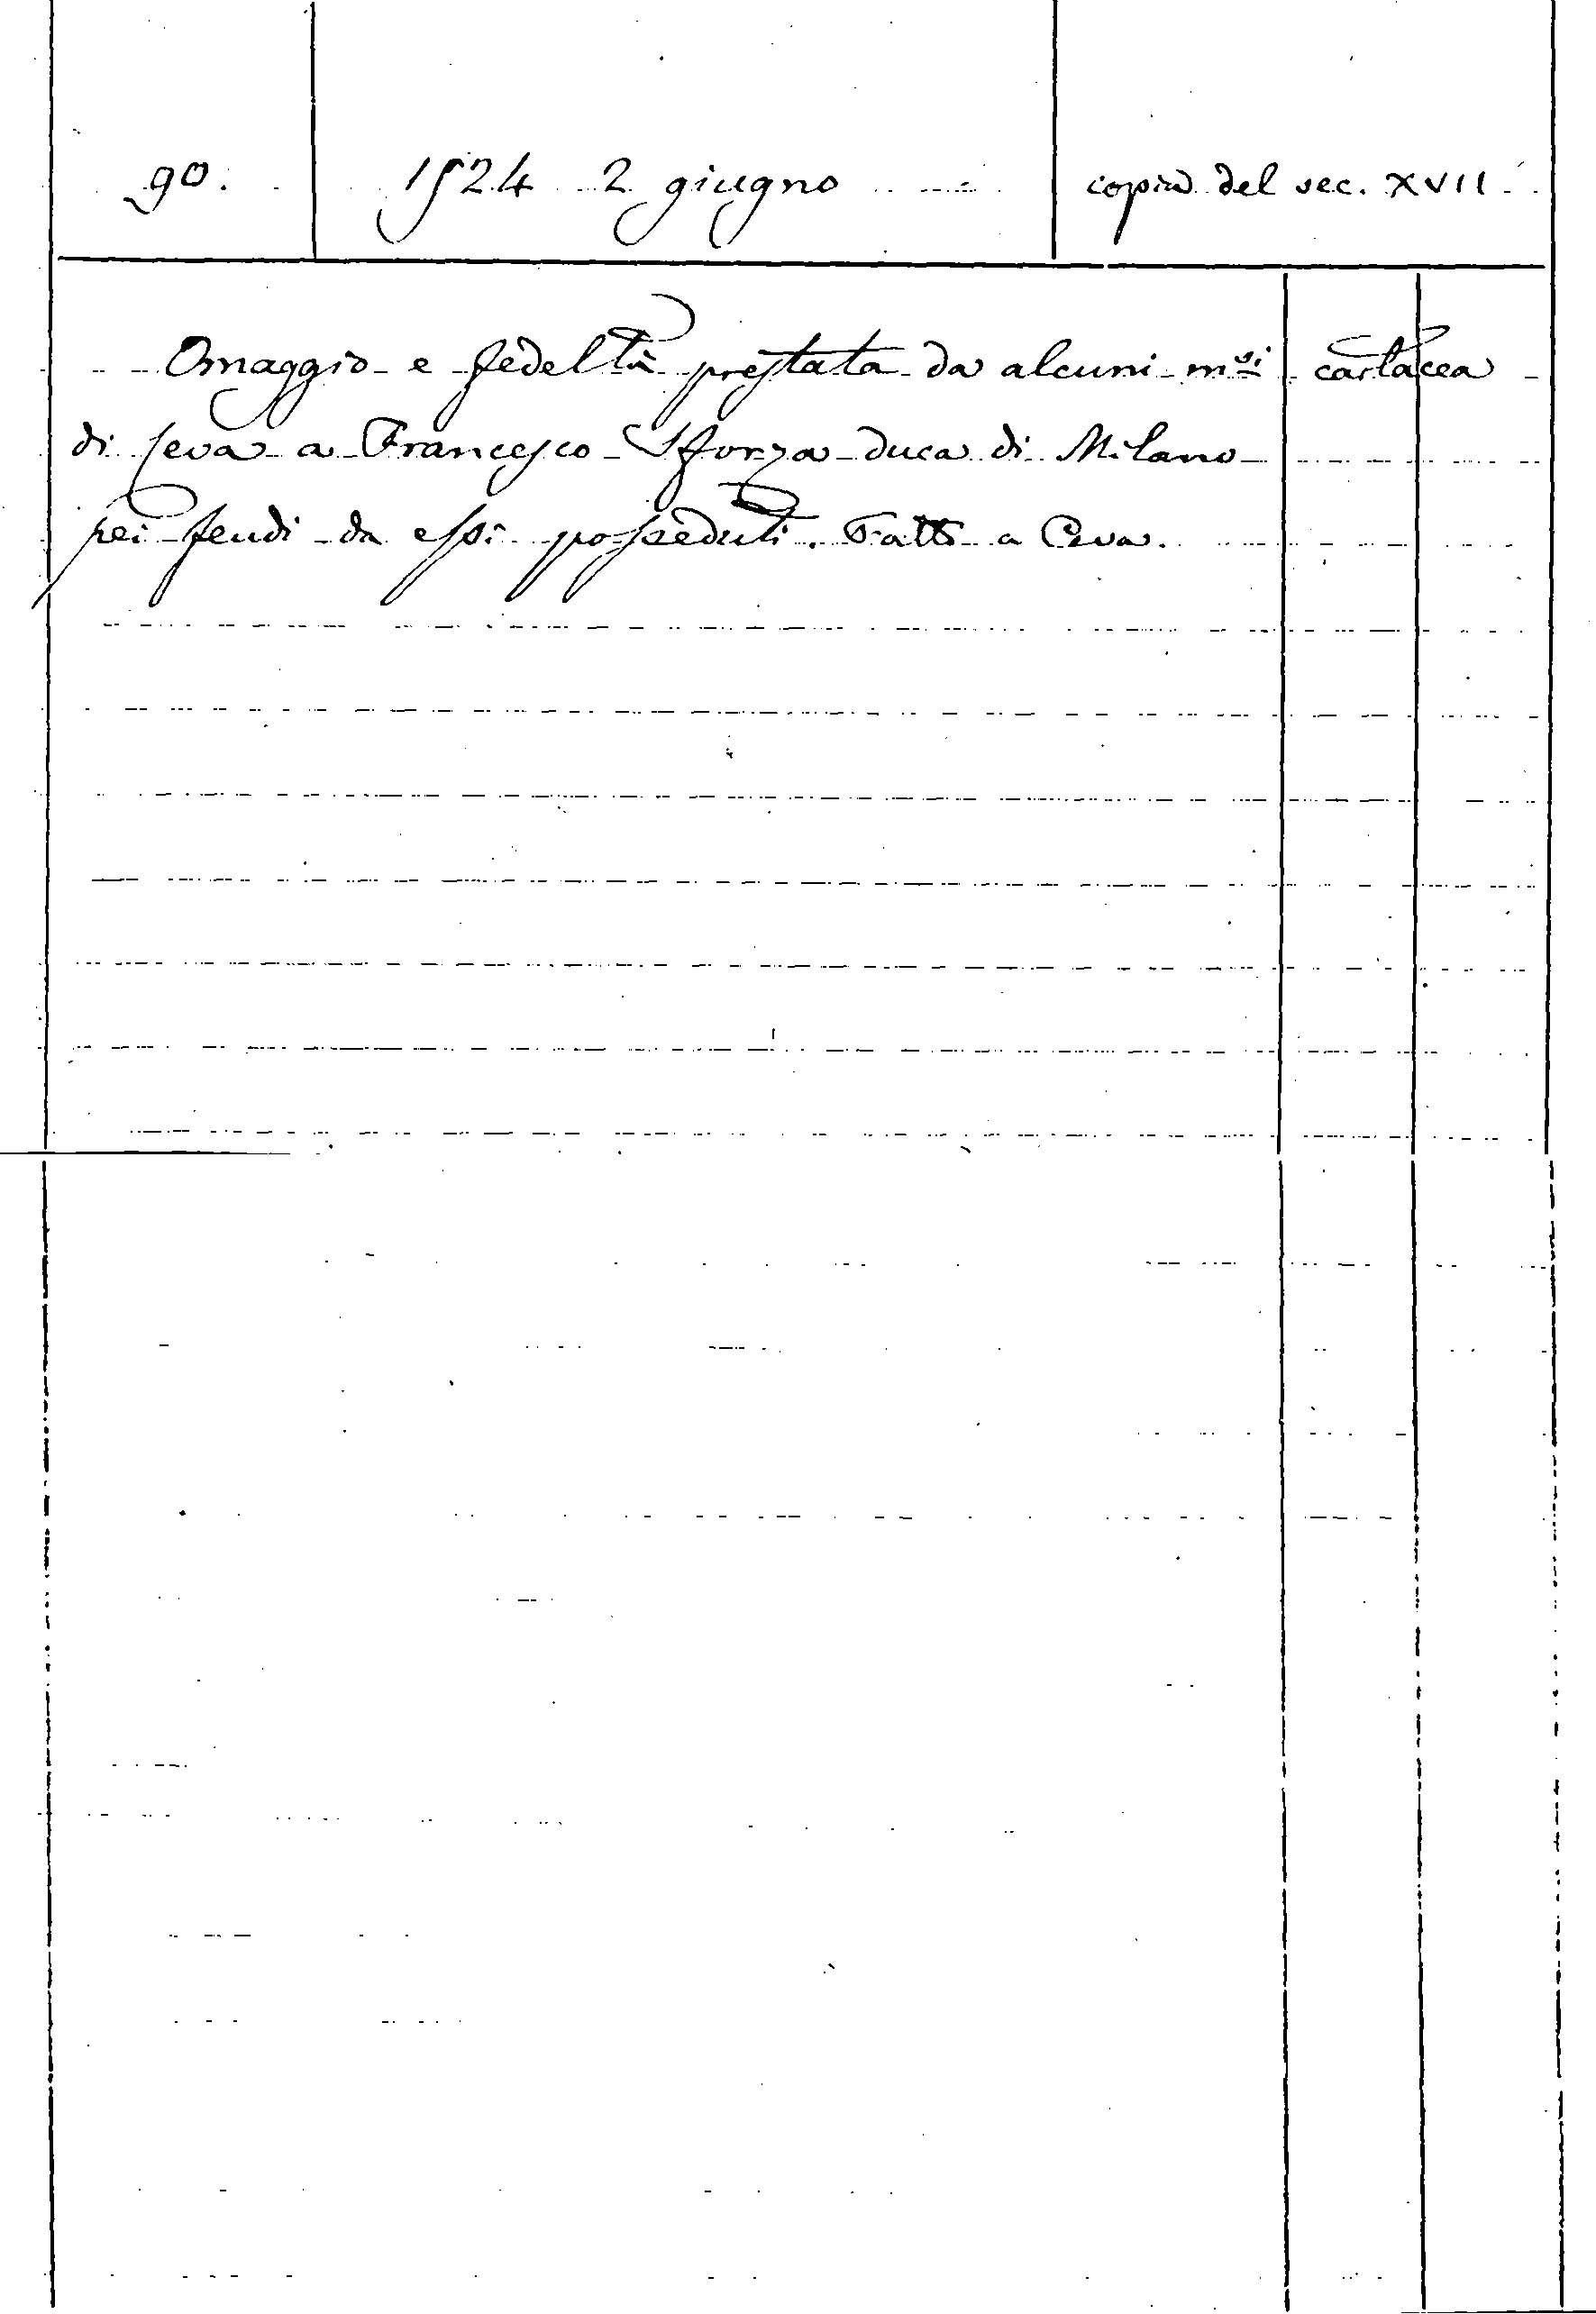 90. 1524 2 giugno copia del sec. XVII
Omaggio e fedeltà prestata da alcuni m.si cartacea
di Ceva a Francesco Sforza duca di Milano
pei feudi da essi posseduti. Fatto a Ceva.